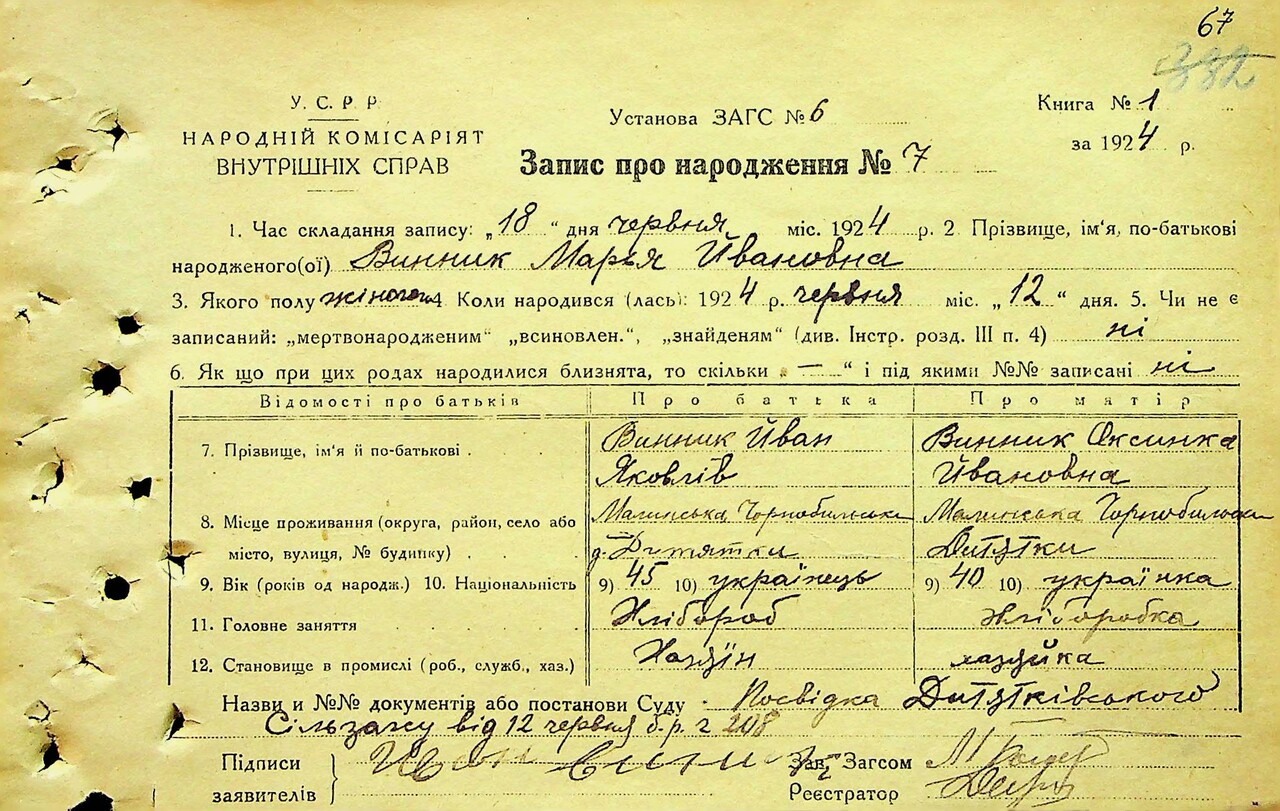 67
382
У. С. Р. Р.
НАРОДНІЙ КОМІСАРІЯТ
ВНУТРІШНІХ СПРАВ
Установа ЗАГС № 6
Книга № 1
за 1924 р.
Запис про народження № 7
1. Час складання запису: „18“ дня червня міс. 1924 р. 2. Прізвище, ім'я, по-батькові
народженого(ої) Винник Марья Йвановна
3. Якого полу жіночого 4. Коли народився (лась): 1924 р. червня міс. „12“ дня. 5. Чи не є
записаний: „мертвонародженим“ „всиновлен.“, „знайденям“ (див. Інстр. розд. III п. 4) ні
6. Як що при цих родах народилися близнята, то скільки „—“ і під якими №№ записані ні
Відомості про батьків Про батька Про матір
7. Прізвище, ім'я й по-батькові Винник Йван Яковлів Винник Оксинка Йвановна
8. Місце проживання (округа, район, село або місто, вулиця, № будинку) Малинська Чорнобильськ д. Дитятки Малинська Чорнобильськ Дитятки
9. Вік (років од народж.) 10. Національність 9) 45 10) українець 9) 40 10) українка
11. Головне заняття Хлібороб Хліборобка
12. Становище в промислі (роб., служб., хаз.) Хазяїн хазяйка
Назви и №№ документів або постанови Суду Посвідка Дитятківського
Сільзагсу від 12 червня б. р. 208
Підписи заявителів Иван Винник
Зав. Загсом
Реєстратор